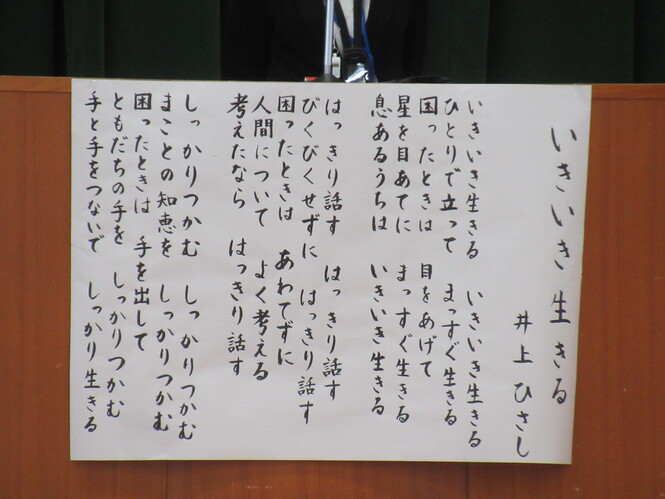 いきいき生きる
井上ひさし
いきいき生きる　いきいき生きる
ひとりで立って　まっすぐ生きる
困ったときは　目をあげて
星を目あてに　まっすぐ生きる
息あるうちは　いきいき生きる
はっきり話す　はっきり話す
びくびくせずに　はっきり話す
困ったときは　あわてずに
人間について　よく考える
考えたなら　はっきり話す
しっかりつかむ　しっかりつかむ
まことの知恵を　しっかりつかむ
困ったときは　手を出して
ともだちの手を　しっかりつかむ
手と手をつないで　しっかり生きる